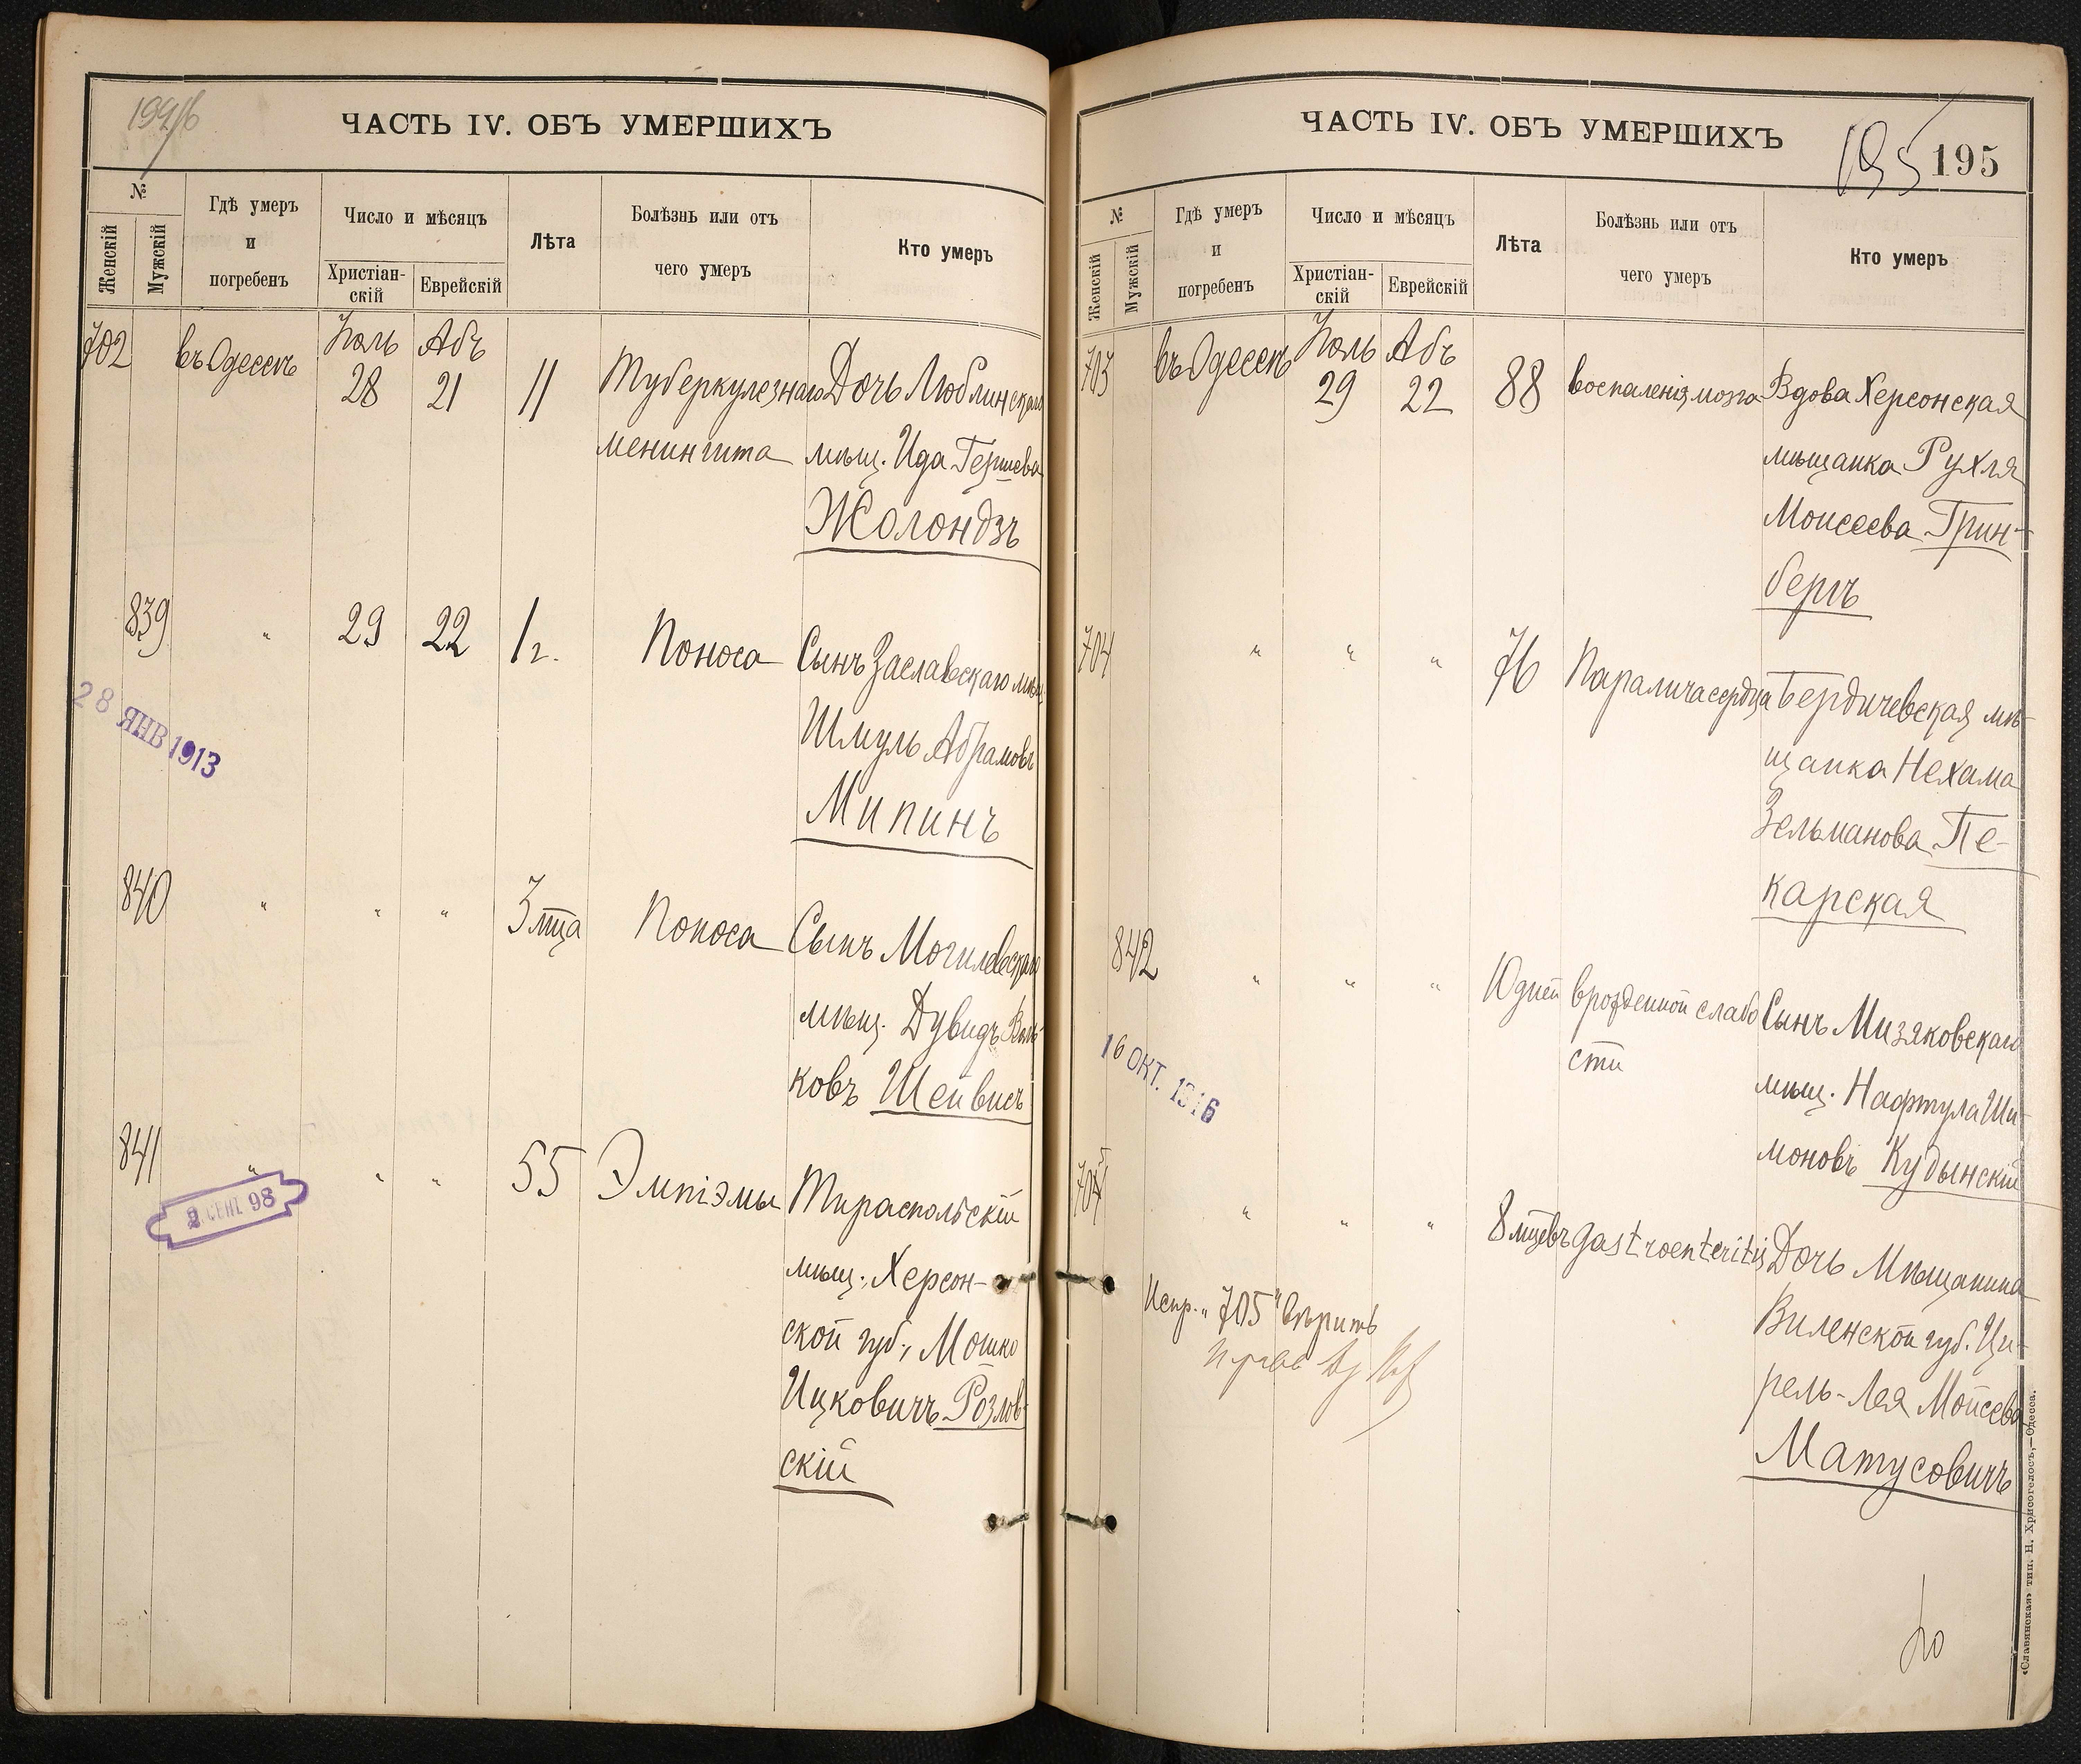 ЧАСТЬ IV. ОБЪ УМЕРШИХЪ
№
Женскій
Мужскій
Гдѣ умеръ
и
погребенъ
Число и мѣсяцъ
Христіан-
скій
Еврейскій
Лѣта
Болѣзнь или отъ
чего умеръ
Кто умеръ
702 въ Одессѣ Іюль 28 Абъ 21 11 Туберкулезнаго Дочь Люблинскаго
менингита мѣщ. Ида Гершева
Жолондзь
839 " 29 22 1 г. Поноса Сынъ Заславскаго мѣщ.
Шмуль Абрамовъ
Мипинъ
28 ЯНВ 1913
840 " " " 3 мца Поноса Сынъ Могилевскаго
мѣщ. Дувидъ Воль-
ковъ Шейвисъ
841 " " " 55 Эмпіэмы Тираспольскій
2 СЕНТ 98
мѣщ., Херсон-
ской губ., Мошко
Ицковичъ Розлов-
скій
ЧАСТЬ IV. ОБЪ УМЕРШИХЪ
195 195
№
Женскій
Мужскій
Гдѣ умеръ
и
погребенъ
Число и мѣсяцъ
Христіан-
скій
Еврейскій
Лѣта
Болѣзнь или отъ
чего умеръ
Кто умеръ
703 въ Одессѣ Іюль 29 Абъ 22 88 воспаленія мозга Вдова Херсонская
мѣщанка Рухля
Моисеева Грин-
бергъ
704 " " " 76 Паралича сердца Бердичевская мѣ-
щанка Нехама
Зельманова Пе-
карская
842 " " " 10 дней врожденной слабо Сынъ Мизяковскаго
сти
мѣщ. Нафтула Ши-
моновъ Кудынскій
16 ОКТ. 1916
705 " " " 8 мцевъ Gastroenteritis Дочь Мѣщанина
Виленской губ. Ци-
рель-Лея Мойсева
Матусовичъ
Испр. "705" вѣрить
«Славянская» тип. Н. Хрисогелосъ,—Одесса.